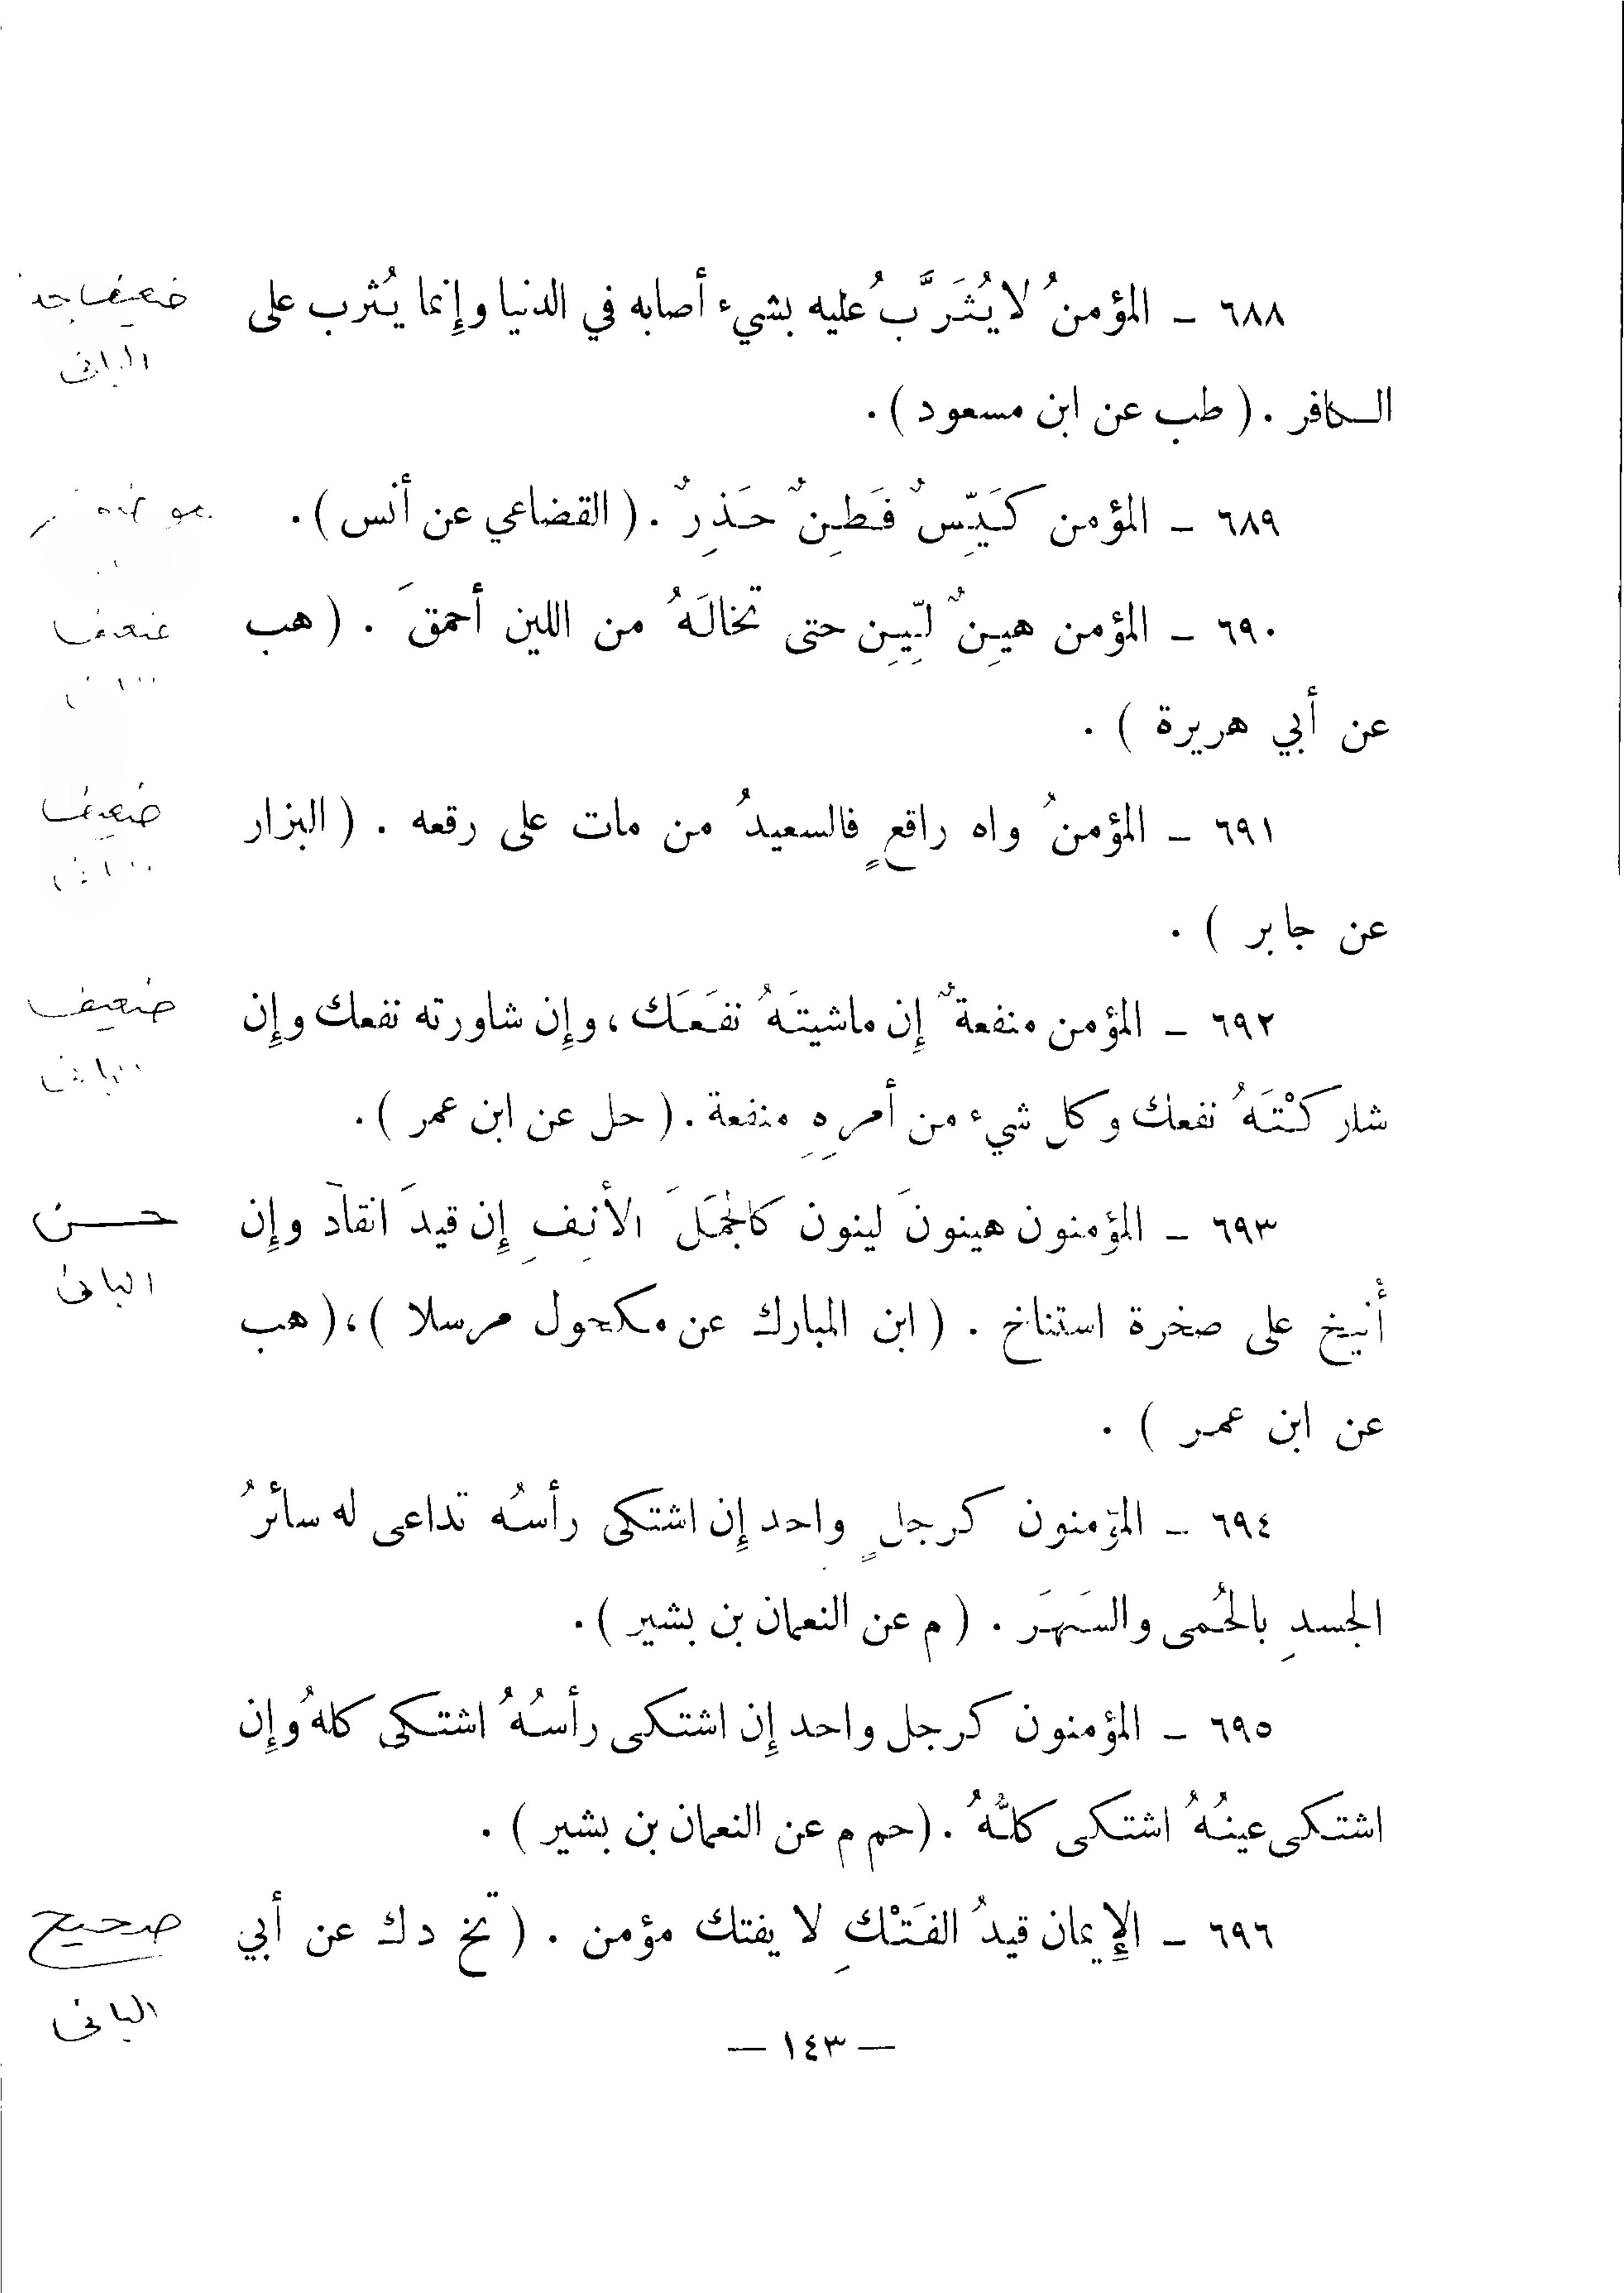 ٦٨٨ ـ المؤمنُ لا يُثَرَّبُ عليه بشيء أصابه في الدنيا وإِنما يُثرب على
ضعيف جدا
الكافر . ( طب عن ابن مسعود ) .
البانى
٦٨٩ ـ المؤمن كَيِّسٌ فَطِنٌ حَذِرٌ . ( القضاعي عن أنس ) .
٦٩٠ ـ المؤمن هيِنٌ ليِّنِ حتى تخالَهُ من اللين أحمقَ . ( هب
ضعيف
عن أبي هريرة ) .
٦٩١ ـ المؤمنُ واه راقعٍ فالسعيدُ من مات على رقعه . ( البزار
ضعيف
عن جابر ) .
٦٩٢ ـ المؤمن منفعةٌ إِن ماشيتَهُ نفَعَك ، وإِن شاورته نفعك وإِن
ضعيف
شاركْتَهُ نفعك وكل شيء من أمرِهِ منفعة . ( حل عن ابن عمر ) .
٦٩٣ ـ المؤمنون هينونَ لينون كالجمَلَ الأنِفِ إِن قيدَ انقادَ وإِن
حسن
أُنيخ على صخرة استناخ . ( ابن المبارك عن مكحول مرسلا ) ، ( هب
البانى
عن ابن عمر ) .
٦٩٤ ـ المؤمنون كرجلٍ واحد إِن اشتكى رأسُه تداعى له سائرُ
الجسدِ بالحُمى والسَهَرَ . ( م عن النعمان بن بشير ) .
٦٩٥ ـ المؤمنون كرجل واحد إِن اشتكى رأسُهُ اشتكى كلهُ وإِن
اشتكى عينُهُ اشتكى كلُّهُ . ( حم م عن النعمان بن بشير ) .
٦٩٦ ـ الإِيمان قيدُ الفَتْكِ لا يفتك مؤمن . ( تخ د ك عن أبي
صحيح
البانى
— ١٤٣ —